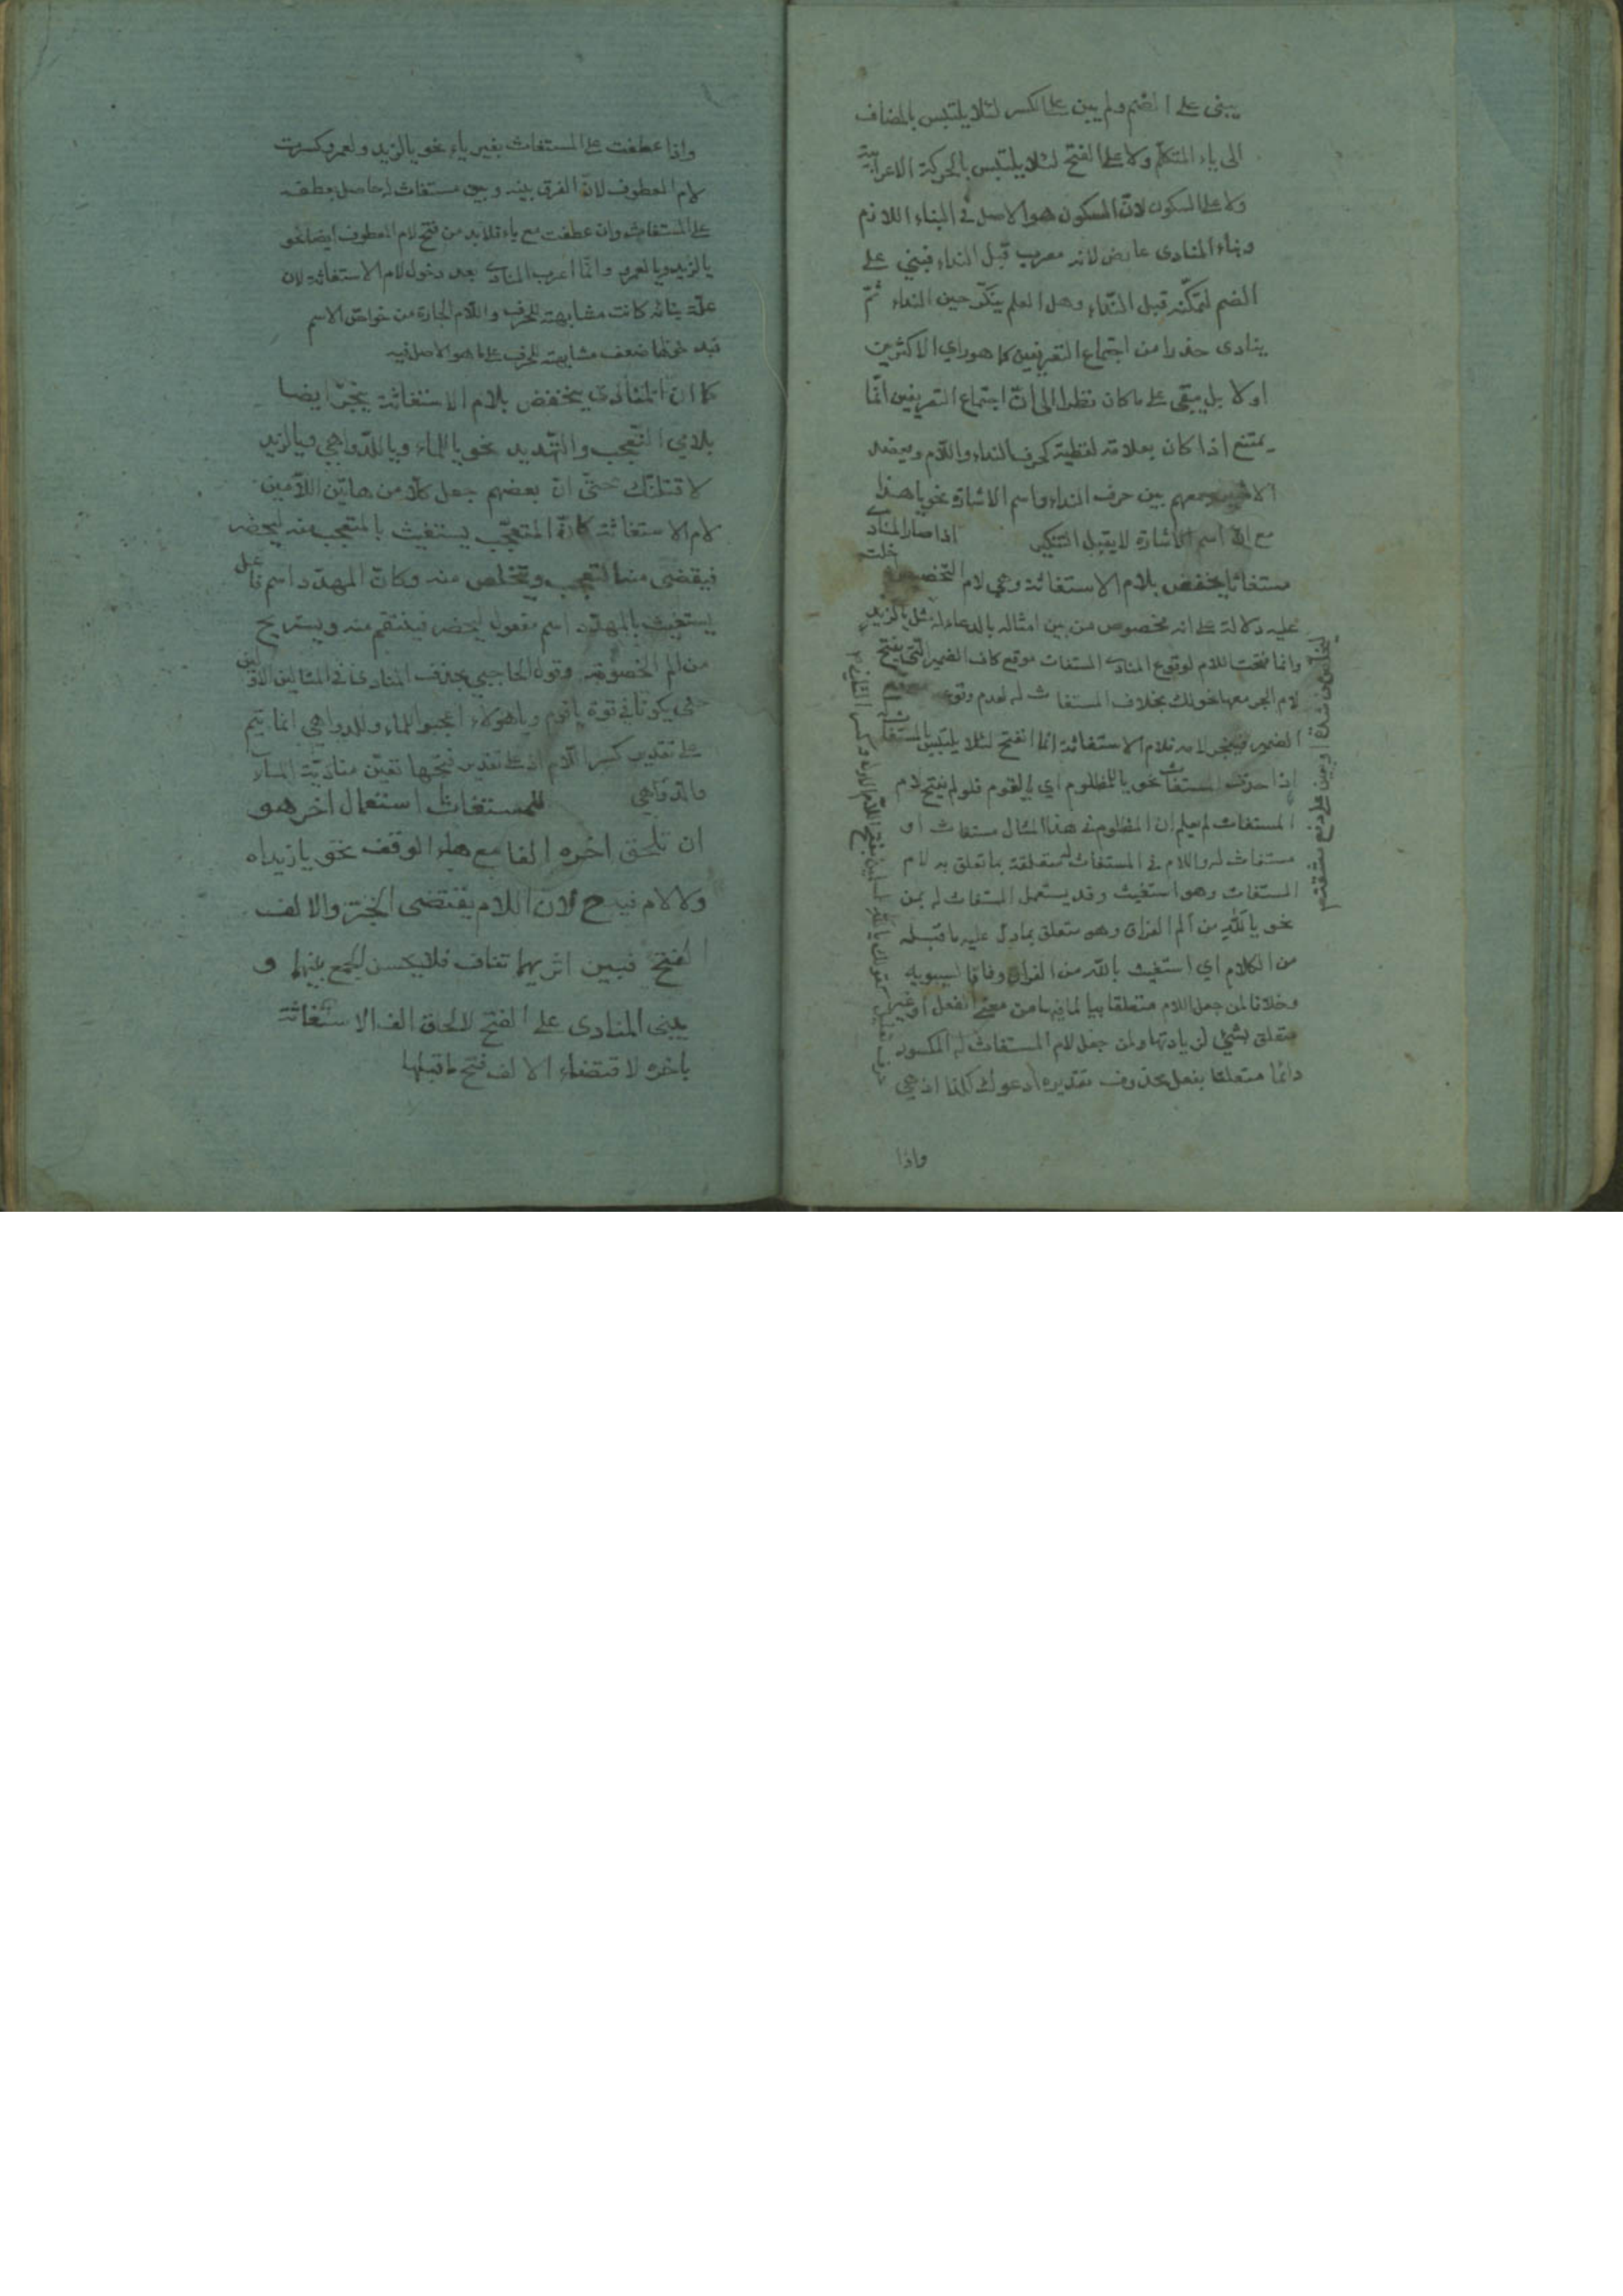 يبنى على الضم ولم يبن على الكسر لئلا يلتبس بالمضاف
الى ياء المتكلم ولا على الفتح لئلا يلتبس بالحركة الاعرابية
ولا على السكون لانّ السكون هو الاصل في البناء اللازم
وبناء المنادى عارض لانه معرب قبل النداء فبني على
الضم لتمكّنه قبل النداء وهل العلم ينكّر حين النداء ثمّ
ينادى حذرا من اجتماع التعريفين كما هو راي الاكثرين
او لا بل يبقى على ما كان نظرا الى انّ اجتماع التعريفين انّما
يمتنع اذا كان بعلامة لفظية كحرف النداء واللام ويعضد
الاخير جمعهم بين حرف النداء واسم الاشارة نحو يا هذا
مع انّ اسم الاشارة لا يقبل التنكير اذا صار المنادى
مستغاثا يخفض بلام الاستغاثة وهي لام التخصيص دخلت
عليه دلالة على انه مخصوص من بين امثاله بالدعاء له مثل يا لزيد
وانما فتحت اللام لوقوع المنادى المستغاث موقع كاف الضمير التي يفتح
لام الجر معها نحو لك بخلاف المستغاث له لعدم وقوعه موقع
الضمير فينجر لامه فلام الاستغاثة انما انفتح لئلا يلتبس بالمستغاث له
اذا حذف المستغاث نحو يا للمظلوم اي يا لقوم فلو لم يفتح لام
المستغاث لم يعلم ان المظلوم في هذا المثال مستغاث او
مستغاث له واللام في المستغاث له متعلقة بما تعلق به لام
المستغاث وهو استغيث وقد يستعمل المستغاث له بمن
نحو يا لله من الم الفراق وهو متعلق بما دل عليه ما قبله
من الكلام اي استغيث بالله من الفراق وفاقا لسيبويه
وخلافا لمن جعل اللام متعلقا بيا لما فيها من معنى الفعل او غير
متعلق بشئ لزيادتها ولمن جعل لام المستغاث له المكسورة
دائما متعلقا بفعل محذوف تقديره ادعوك كلفا اذ هي
واذا
واذا عطفت على المستغاث بغير ياء نحو يا لزيد ولعمرو كسرت
لام المعطوف لانّ الفرق بينه وبين مستغاث له حاصل بعطفه
على المستغاث وان عطفت مع ياء فلا بد من فتح لام المعطوف ايضا نحو
يا لزيد ويا لعمرو وانّما اعرب المنادى بعد دخول لام الاستغاثة لان
علّة بنائه كانت مشابهته للحرف واللام الجارة من خواصّ الاسم
فبدخولها ضعف مشابهته للحرف على ما هو الاصل فيه
كما انّ المنادى يخفض بلام الاستغاثة ينجرّ ايضا
بلامي التعجب والتهديد نحو يا للماء ويا للدواهي ويا لزيد
لاقتلنّك حتّى انّ بعضهم جعل كلّا من هاتين اللامين
لام الاستغاثة كانّ المتعجّب يستغيث بالمتعجب منه ليحضر
فيقضى منه التعجب ويتخلص منه وكان المهدّد اسم فاعل
يستغيث بالمهدّد اسم مفعول ليحضر فينتقم منه ويستريح
من الم الخصومة وقول الحاجبي بحذف المنادى في المثالين الاولين
حتى يكونا في قوة يا قوم ويا هؤلاء اعجبوا للماء وللدواهي انما يتم
على تقدير كسر اللام اذ على تقدير فتحها تعيّن منادية الماء
والدواهي للمستغاث استعمال اخر هو
ان تلحق اخره الفا مع هاء الوقف نحو يا زيداه
ولا لام فيه ح لان اللام يقتضى الجرّ والالف
الفتح فبين اثريهما تناف فلا يحسن الجمع بينهما و
يبنى المنادى على الفتح لالحاق الف الاستغاثة
باخره لاقتضاء الالف فتح ما قبلها